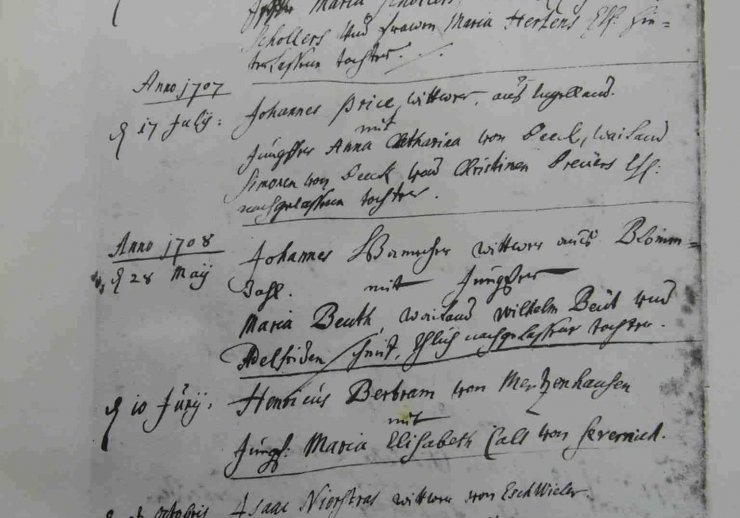 Maria Schollers
Schollers und frawen Maria Hertens Ehl. hin=
terlaßene tochter.
Anno 1707
17 Julij: Johannes Price, wittwer, auß Engelland.
mit
Jungfer Anna Catharina von Deeck, weiland
Simonen von Deeck und Christinen Preüers Ehl:
nachgelaßene tochter.
Anno 1708
28 Maij Johannes wittwer auß Blomm=
dahl. mit Jungfer
Maria Beuth, weiland Wilhelm Beüt und
Adelheiden Ehlich nachgelaßene tochter.
10 Junij. Henricus Bertram von Mertzenhausen
mit
Jungf: Maria Elisabeth Call von
octobris Isaac Nierstras wittwer von Eschwieler.